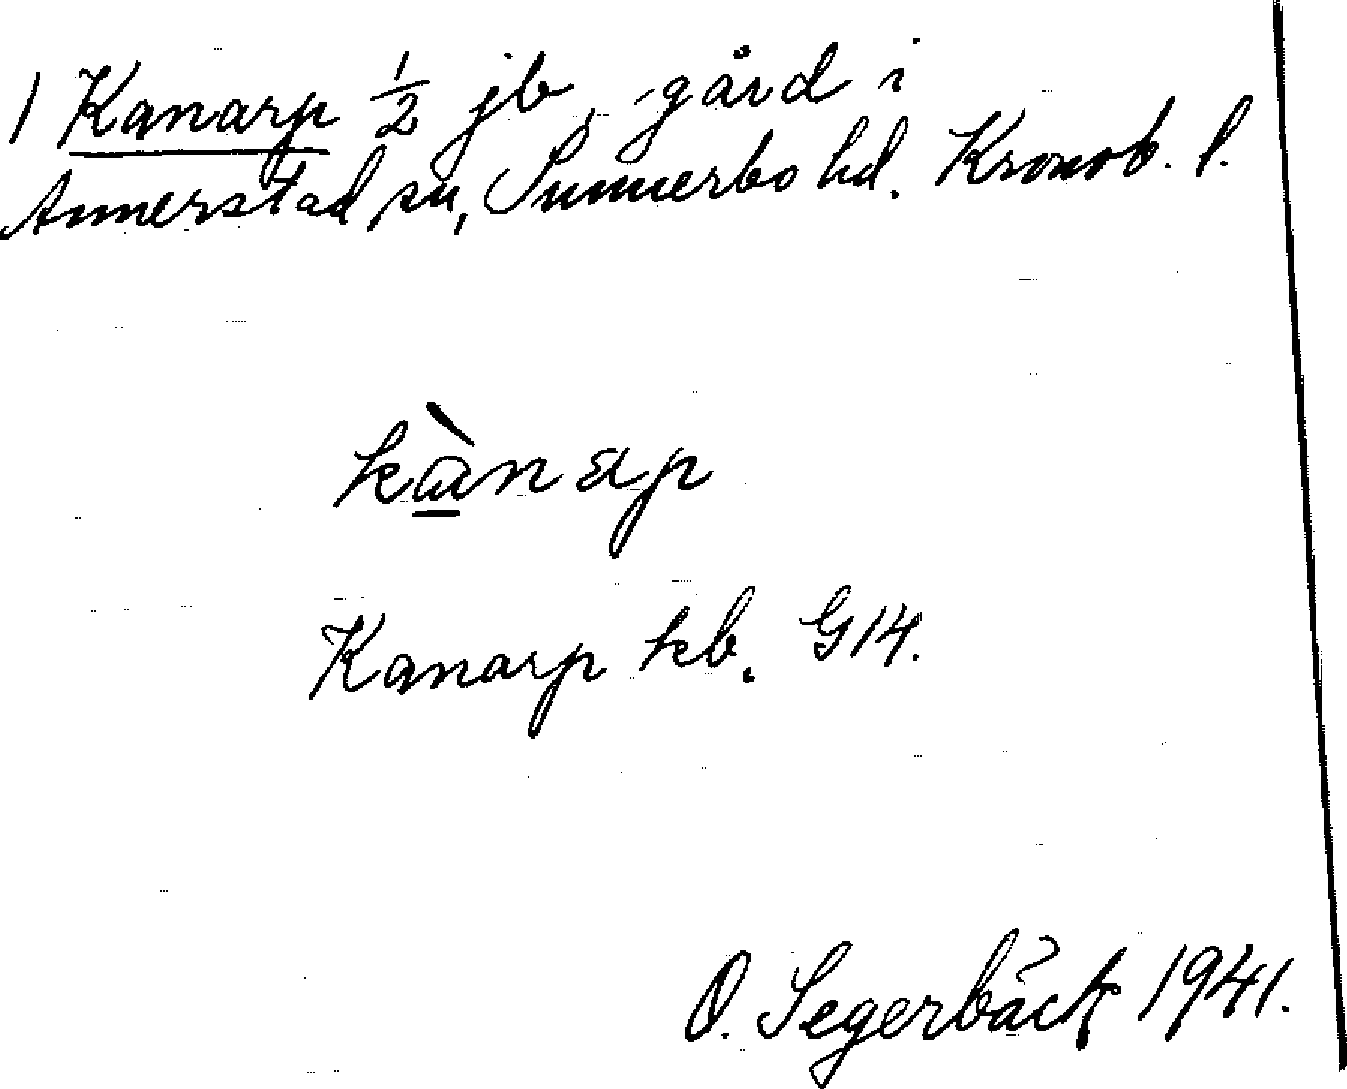 1 Kanarp 1/2 jb, gård i
Annerstad sn, Sunnerbo hd. Kronob. l.
kànap
Kanarp kb. G14.
O. Segerbäck 1941.